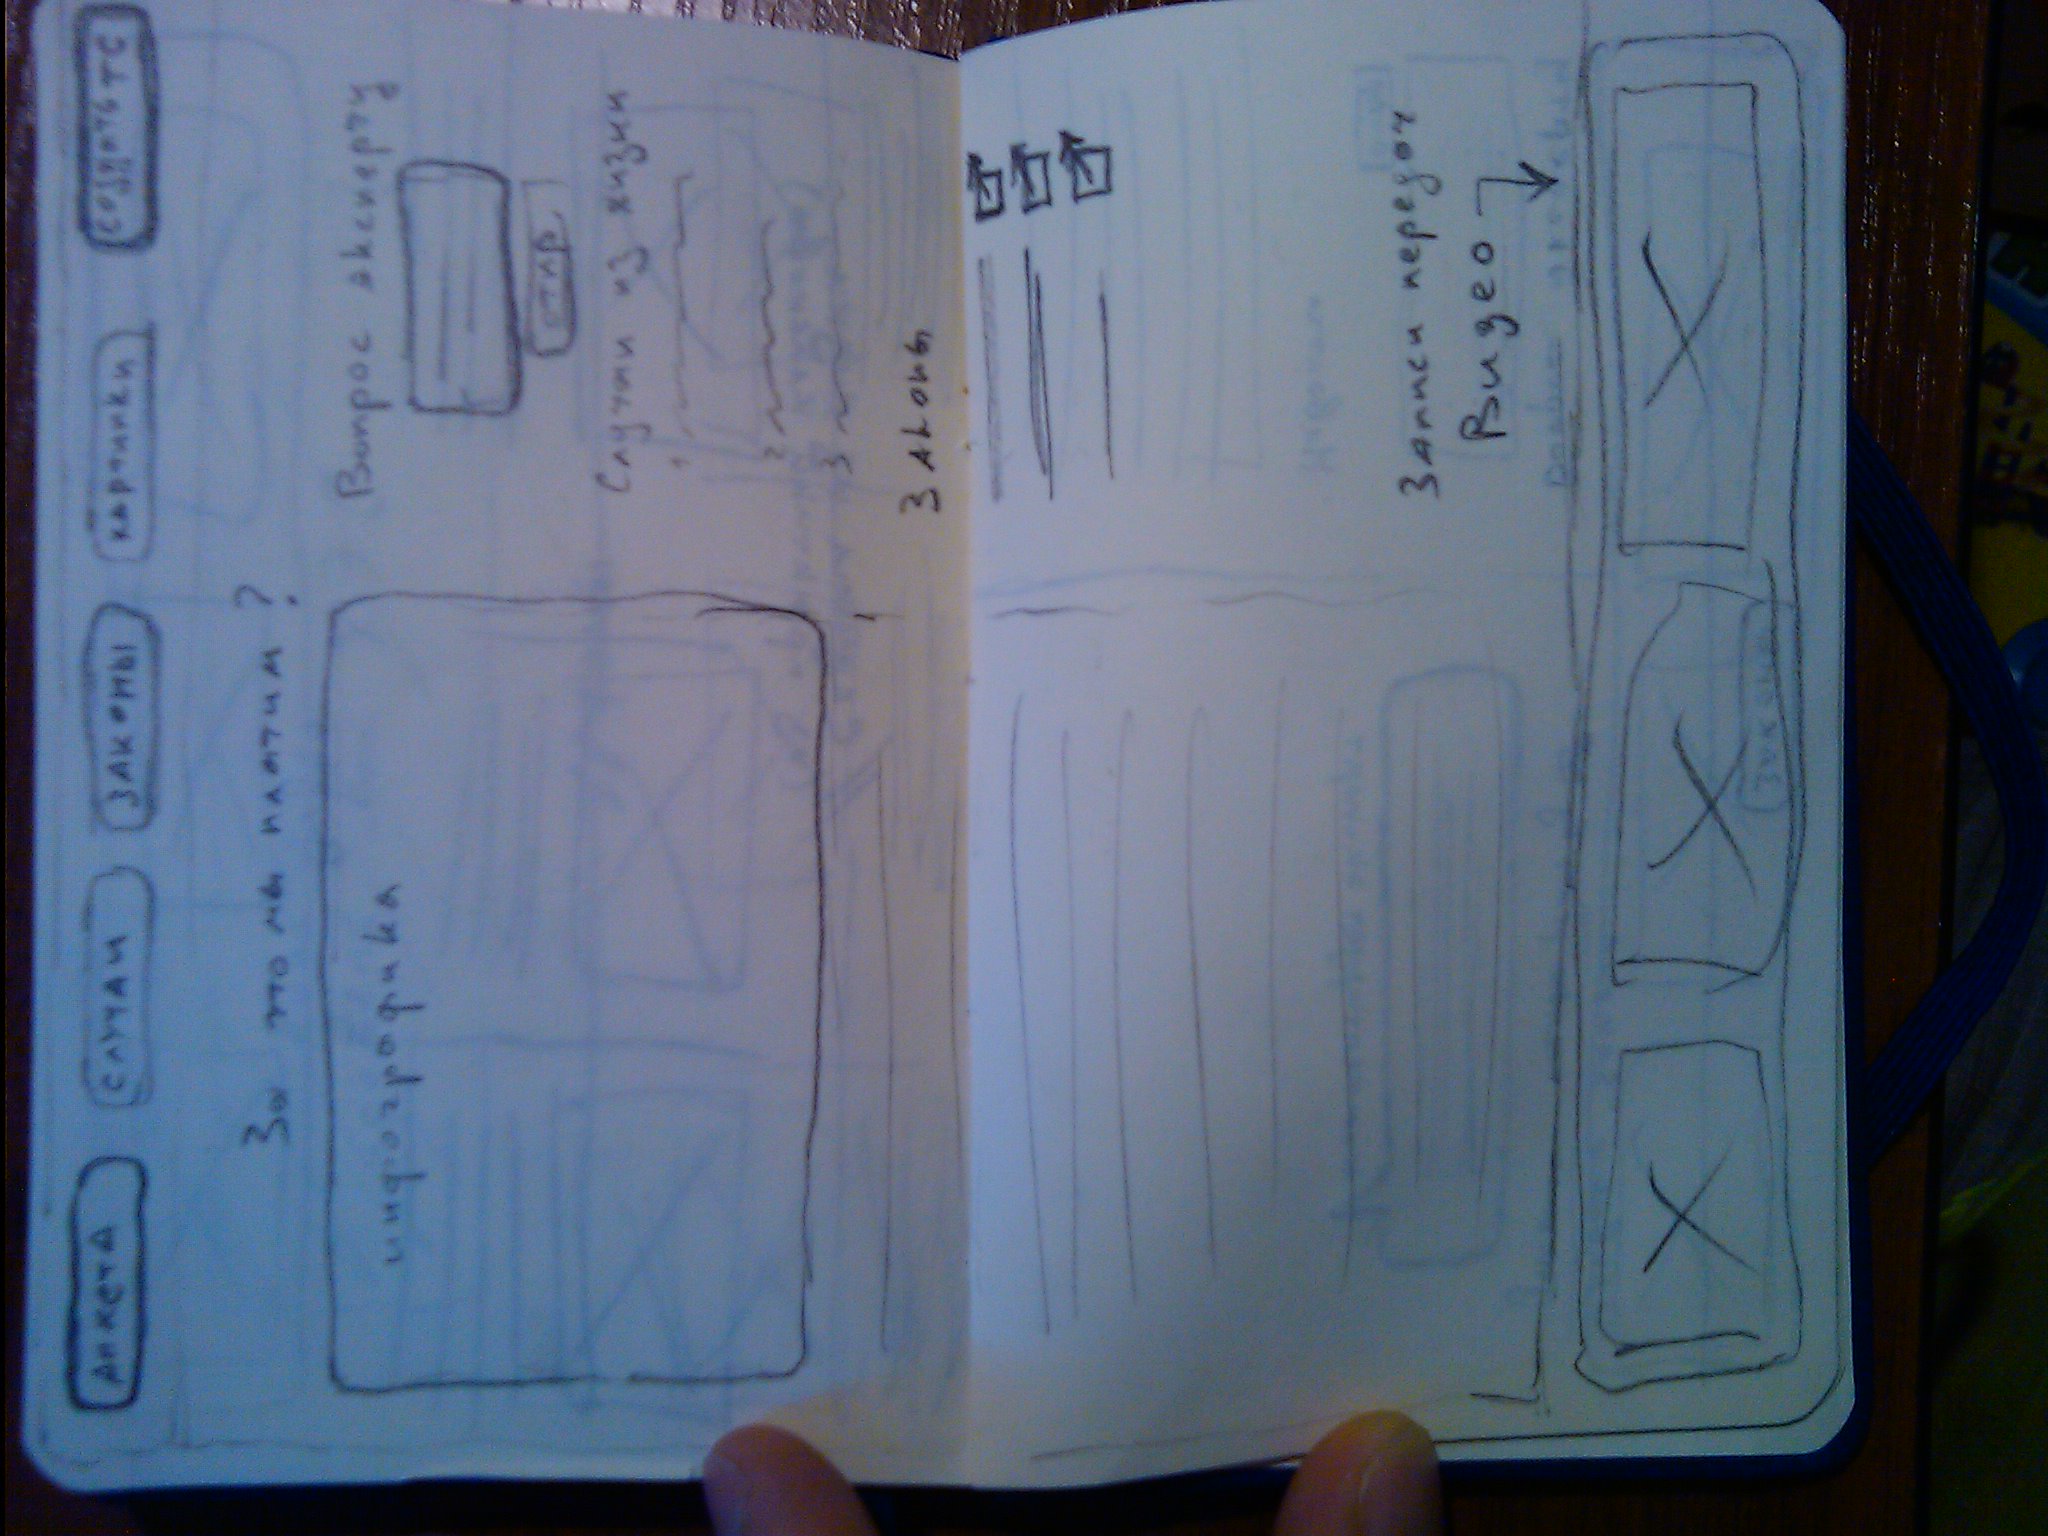 АНКЕТА СЛУЧАИ ЗАКОНЫ КАРТИНКИ СОЗДАТЬ ТС
За что мы платим?
инфографика
Вопрос эксперту
отпр
Случаи из жизни
1
2
3
Законы
Записи передач
Видео